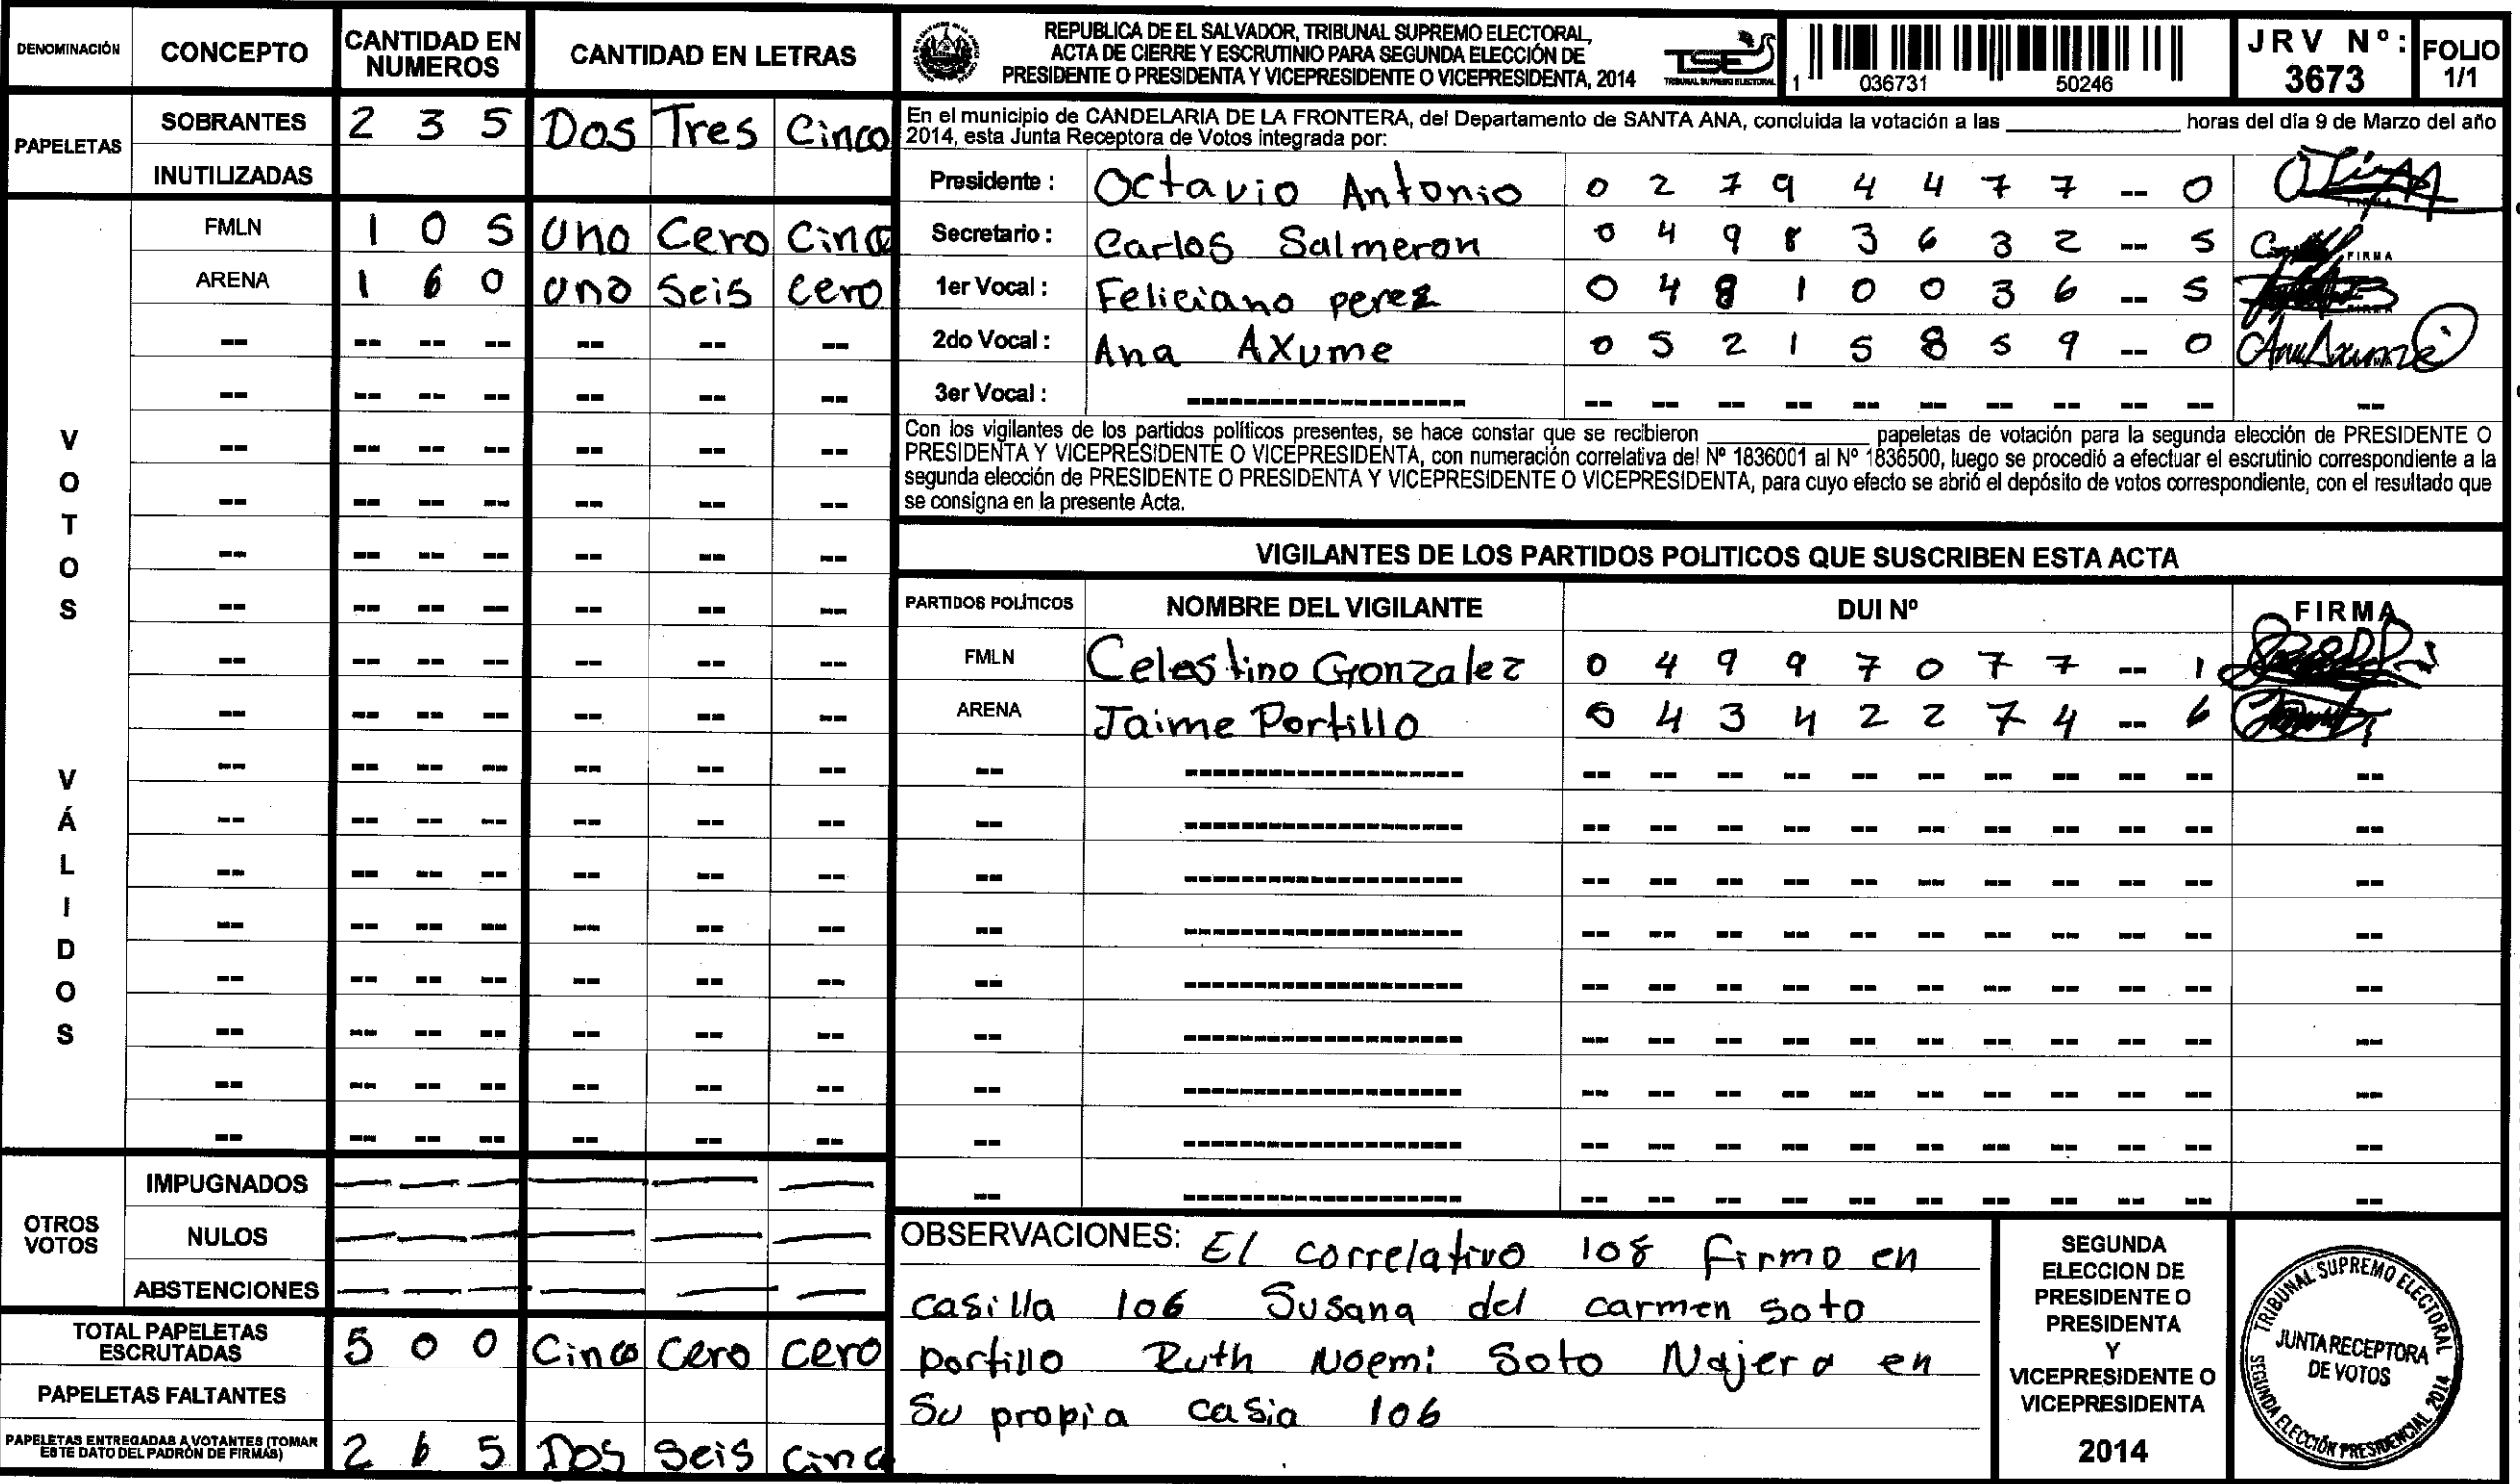 DENOMINACIÓN CONCEPTO CANTIDAD EN NUMEROS CANTIDAD EN LETRAS
PAPELETAS
SOBRANTES 2 3 5 Dos Tres Cinco
INUTILIZADAS
VOTOS VÁLIDOS
FMLN 1 0 5 Uno Cero Cinco
ARENA 1 6 0 Uno Seis Cero
OTROS VOTOS
IMPUGNADOS
NULOS
ABSTENCIONES
TOTAL PAPELETAS ESCRUTADAS 5 0 0 Cinco Cero Cero
PAPELETAS FALTANTES
PAPELETAS ENTREGADAS A VOTANTES (TOMAR ESTE DATO DEL PADRÓN DE FIRMAS) 2 6 5 Dos Seis Cinco
REPUBLICA DE EL SALVADOR, TRIBUNAL SUPREMO ELECTORAL,
ACTA DE CIERRE Y ESCRUTINIO PARA SEGUNDA ELECCIÓN DE
PRESIDENTE O PRESIDENTA Y VICEPRESIDENTE O VICEPRESIDENTA, 2014
TSE
TRIBUNAL SUPREMO ELECTORAL
1 036731 50246
JRV Nº: 3673
FOLIO 1/1
En el municipio de CANDELARIA DE LA FRONTERA, del Departamento de SANTA ANA, concluida la votación a las ____ horas del día 9 de Marzo del año
2014, esta Junta Receptora de Votos integrada por:
Presidente : Octavio Antonio 0 2 7 9 4 4 7 7 -- 0
Secretario : Carlos Salmeron 0 4 9 8 3 6 3 2 -- 5 FIRMA
1er Vocal : Feliciano perez 0 4 8 1 0 0 3 6 -- 5
2do Vocal : Ana AXume 0 5 2 1 5 8 5 9 -- 0 Ana Axume
3er Vocal :
Con los vigilantes de los partidos políticos presentes, se hace constar que se recibieron ____ papeletas de votación para la segunda elección de PRESIDENTE O
PRESIDENTA Y VICEPRESIDENTE O VICEPRESIDENTA, con numeración correlativa del Nº 1836001 al Nº 1836500, luego se procedió a efectuar el escrutinio correspondiente a la
segunda elección de PRESIDENTE O PRESIDENTA Y VICEPRESIDENTE O VICEPRESIDENTA, para cuyo efecto se abrió el depósito de votos correspondiente, con el resultado que
se consigna en la presente Acta.
VIGILANTES DE LOS PARTIDOS POLITICOS QUE SUSCRIBEN ESTA ACTA
PARTIDOS POLÍTICOS NOMBRE DEL VIGILANTE DUI Nº FIRMA
FMLN Celestino Gonzalez 0 4 9 9 7 0 7 7 -- 1
ARENA Jaime Portillo 0 4 3 4 2 2 7 4 -- 6
OBSERVACIONES: El correlativo 108 Firmo en
casilla 106 Susana del carmen soto
portillo Ruth Noemi Soto Najera en
Su propia casia 106
SEGUNDA
ELECCION DE
PRESIDENTE O
PRESIDENTA
Y
VICEPRESIDENTE O
VICEPRESIDENTA
2014
TRIBUNAL SUPREMO ELECTORAL
JUNTA RECEPTORA
DE VOTOS
SEGUNDA ELECCIÓN PRESIDENCIAL 2014